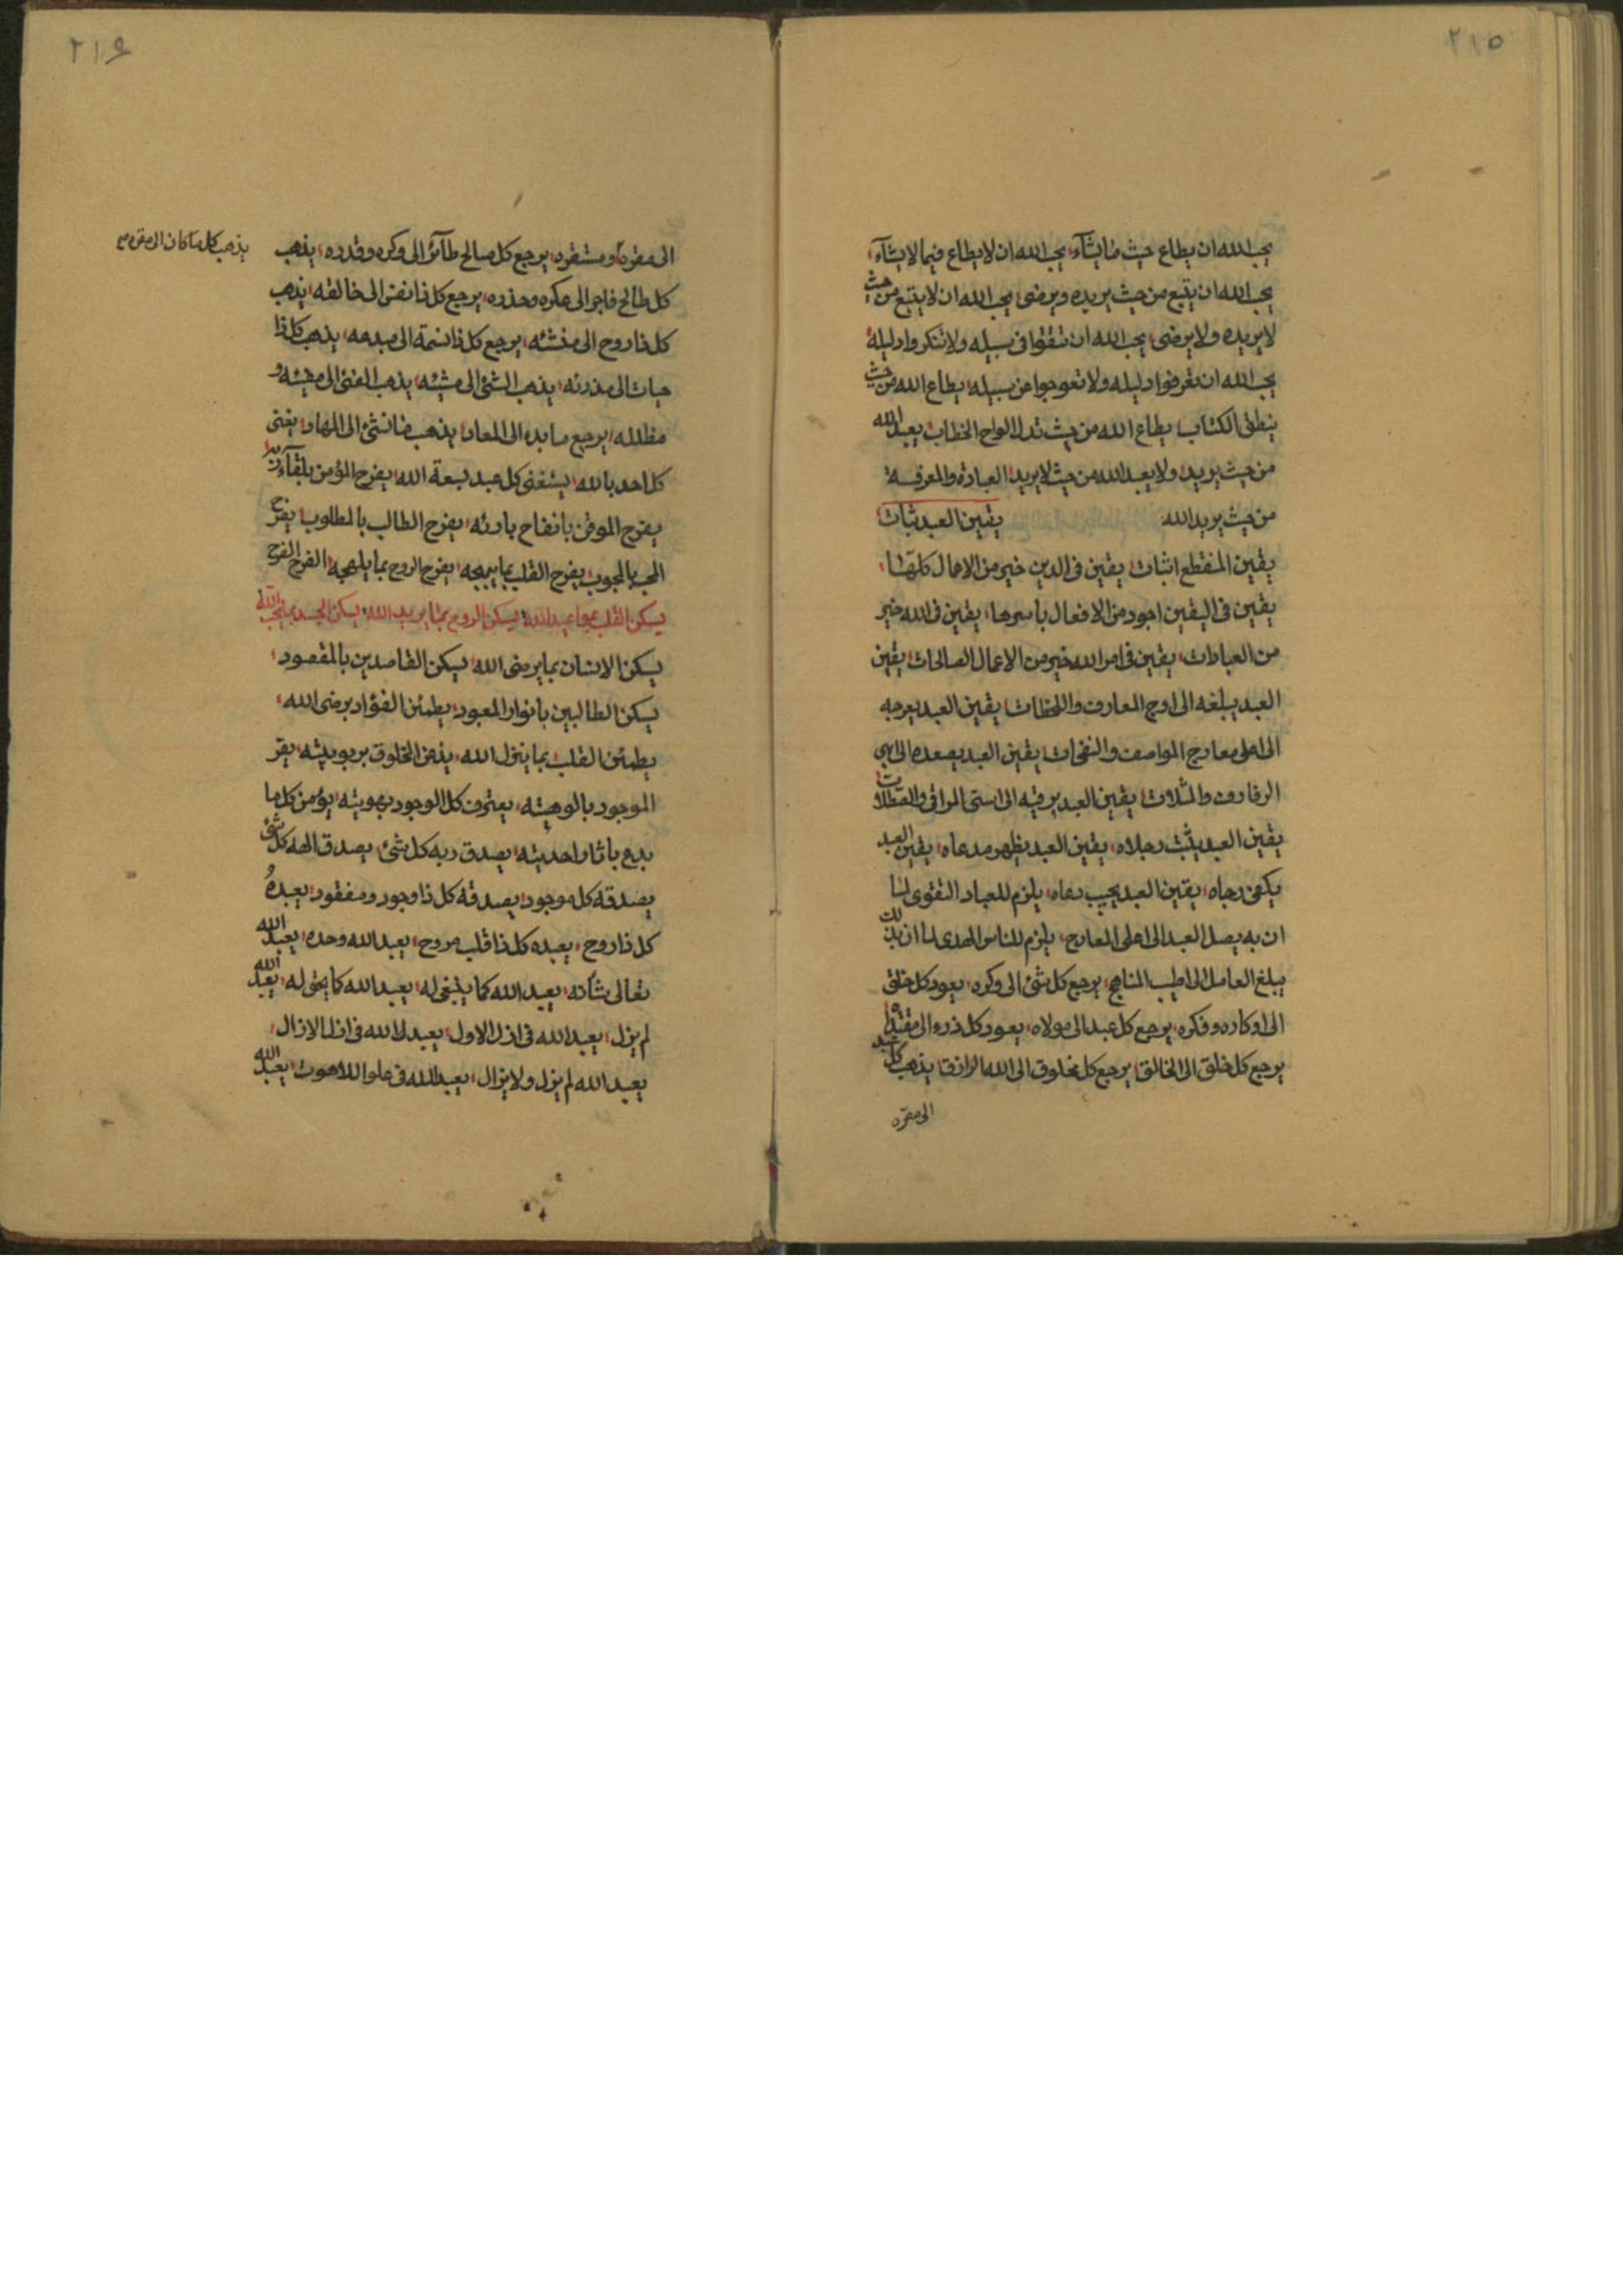 ٢١٥
يحب الله ان يطاع حيث ما يشآء، يحب الله ان لا يطاع فيما لا يشآء،
يحب الله ان يتبع من حيث يريده ويرضى، يحب الله ان لا يتبع من حيث
لا يريده ولا يرضى، يحب الله ان تتقوا فى سبيله ولا تنكروا دليله،
يحب الله ان تعرفوا دليله ولا تعوجوا عن سبيله، يطاع الله من حيث
ينطق الكتاب، يطاع الله من حيث تدل الواح الخطاب، يعبد الله
من حيث يريد، ولا يعبد الله من حيث لا يريد، العبادة والمعرفة
من حيث يريد الله، يقين العبد ثبات،
يقين المنقطع اثبات، يقين فى الدين خير من الاعمال كلها،
يقين فى اليقين اجود من الافعال باسرها، يقين فى الله خير
من العبادات، يقين فى امر الله خير من الاعمال الصالحات، يقين
العبد يبلغه الى اوج المعارف واللحظات، يقين العبد يعرجه
الى اعلى معارج المواصف والنفحات، يقين العبد يصعده الى ابهى
الرفارف، يقين العبد يرقيه الى اسنى المراقى
يقين العبد يثبت رجلاه، يقين العبد يظهر مدعاه، يقين العبد
يكفى رجاه، يقين العبد يجيب دعاه، يلزم للعباد التقوى لما
ان به يصل العبد الى اعلى المعارج، يلزم للناس الهدى لما ان بذلك
يبلغ العامل الى اطيب المناهج، يرجع كل شئ الى وكره، يعود كل خلق
الى اوكاره وفكره، يرجع كل عبد الى مولاه، يعود كل ذرء الى مقتداه
يرجع كل خلق الى الخالق، يرجع كل مخلوق الى الله الرازق، يذهب كل عبد
الى مقره
٢١٦
الى مقره ومستقره، يرجع كل صالح طآئر الى وكره وقدره، يذهب
يذهب كل ما كان الى مقره
كل طالح فاجر الى مكره وحذره، يرجع كل ذا نفس الى خالقه، يذهب
كل ذا روح الى منشئه، يرجع كل ذا نسمة الى مبدعه، يذهب كل ذا
حيات الى مذرئه، يذهب الشئ الى مشيئه، يذهب الفئ الى
مظلله، يرجع ما بدء الى المعاد، يذهب ما انشئ الى المهاد، يغنى
كل احد بالله، يستغنى كل عبد بسعة الله، يفرح المؤمن بلقآء ربه
يفرح الموقن بانفاح بارئه، يفرح الطالب بالمطلوب، يفرح
المحب بالمحبوب، يفرح القلب بما يبهجه، يفرح الروح بما يلهجه، الفرح الفرح
يسكن القلب بمواعيد الله، يسكن الروح بما يريد الله، يسكن الجسد بما يحب الله
يسكن الانسان بما يرضى الله، يسكن القاصدين بالمقصود،
يسكن الطالبين بانوار المعبود، يطمئن الفؤاد برضى الله،
يطمئن القلب بما ينزل الله، يذعن المخلوق بربوبيته، يقر
الموجود بالوهيته، يعترف كل الوجود بهويته، يؤمن كل ما
بدع باثار احديته، يصدق ربه كل شئ، يصدق الهه كل شئ
يصدقه كل موجود، يصدقه كل ذا وجود ومفقود، يعبده
كل ذا روح، يعبده كل ذا قلب مروح، يعبد الله وحده، يعبد الله
تعالى شأنه، يعبد الله كما ينبغى له، يعبد الله كما يحق له، يعبد الله
لم يزل، يعبد الله فى ازل الاول، يعبد الله فى ازل الازال،
يعبد الله لم يزل ولا يزال، يعبد الله فى علو اللاهوت، يعبد الله